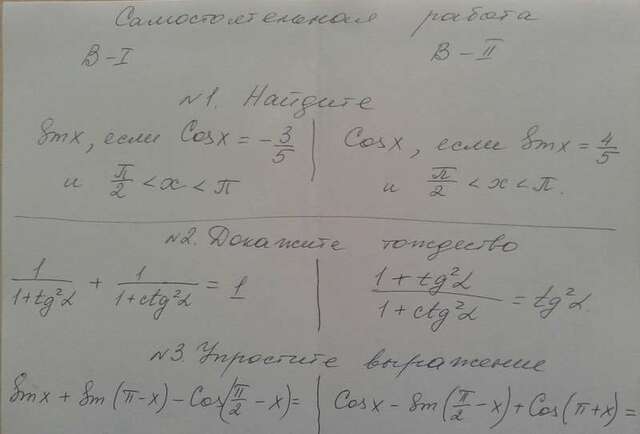 Самостоятельная работа
В-I В-II
№1. Найдите
Sin x, если Cos x = -3/5 | Cos x, если Sin x = 4/5
и π/2 < x < π | и π/2 < x < π.
№2. Докажите тождество
1/(1+tg²α) + 1/(1+ctg²α) = 1 | (1+tg²α)/(1+ctg²α) = tg²α.
№3. Упростите выражение
Sin x + Sin(π-x) - Cos(π/2 - x) = | Cos x - Sin(π/2 - x) + Cos(π+x) =